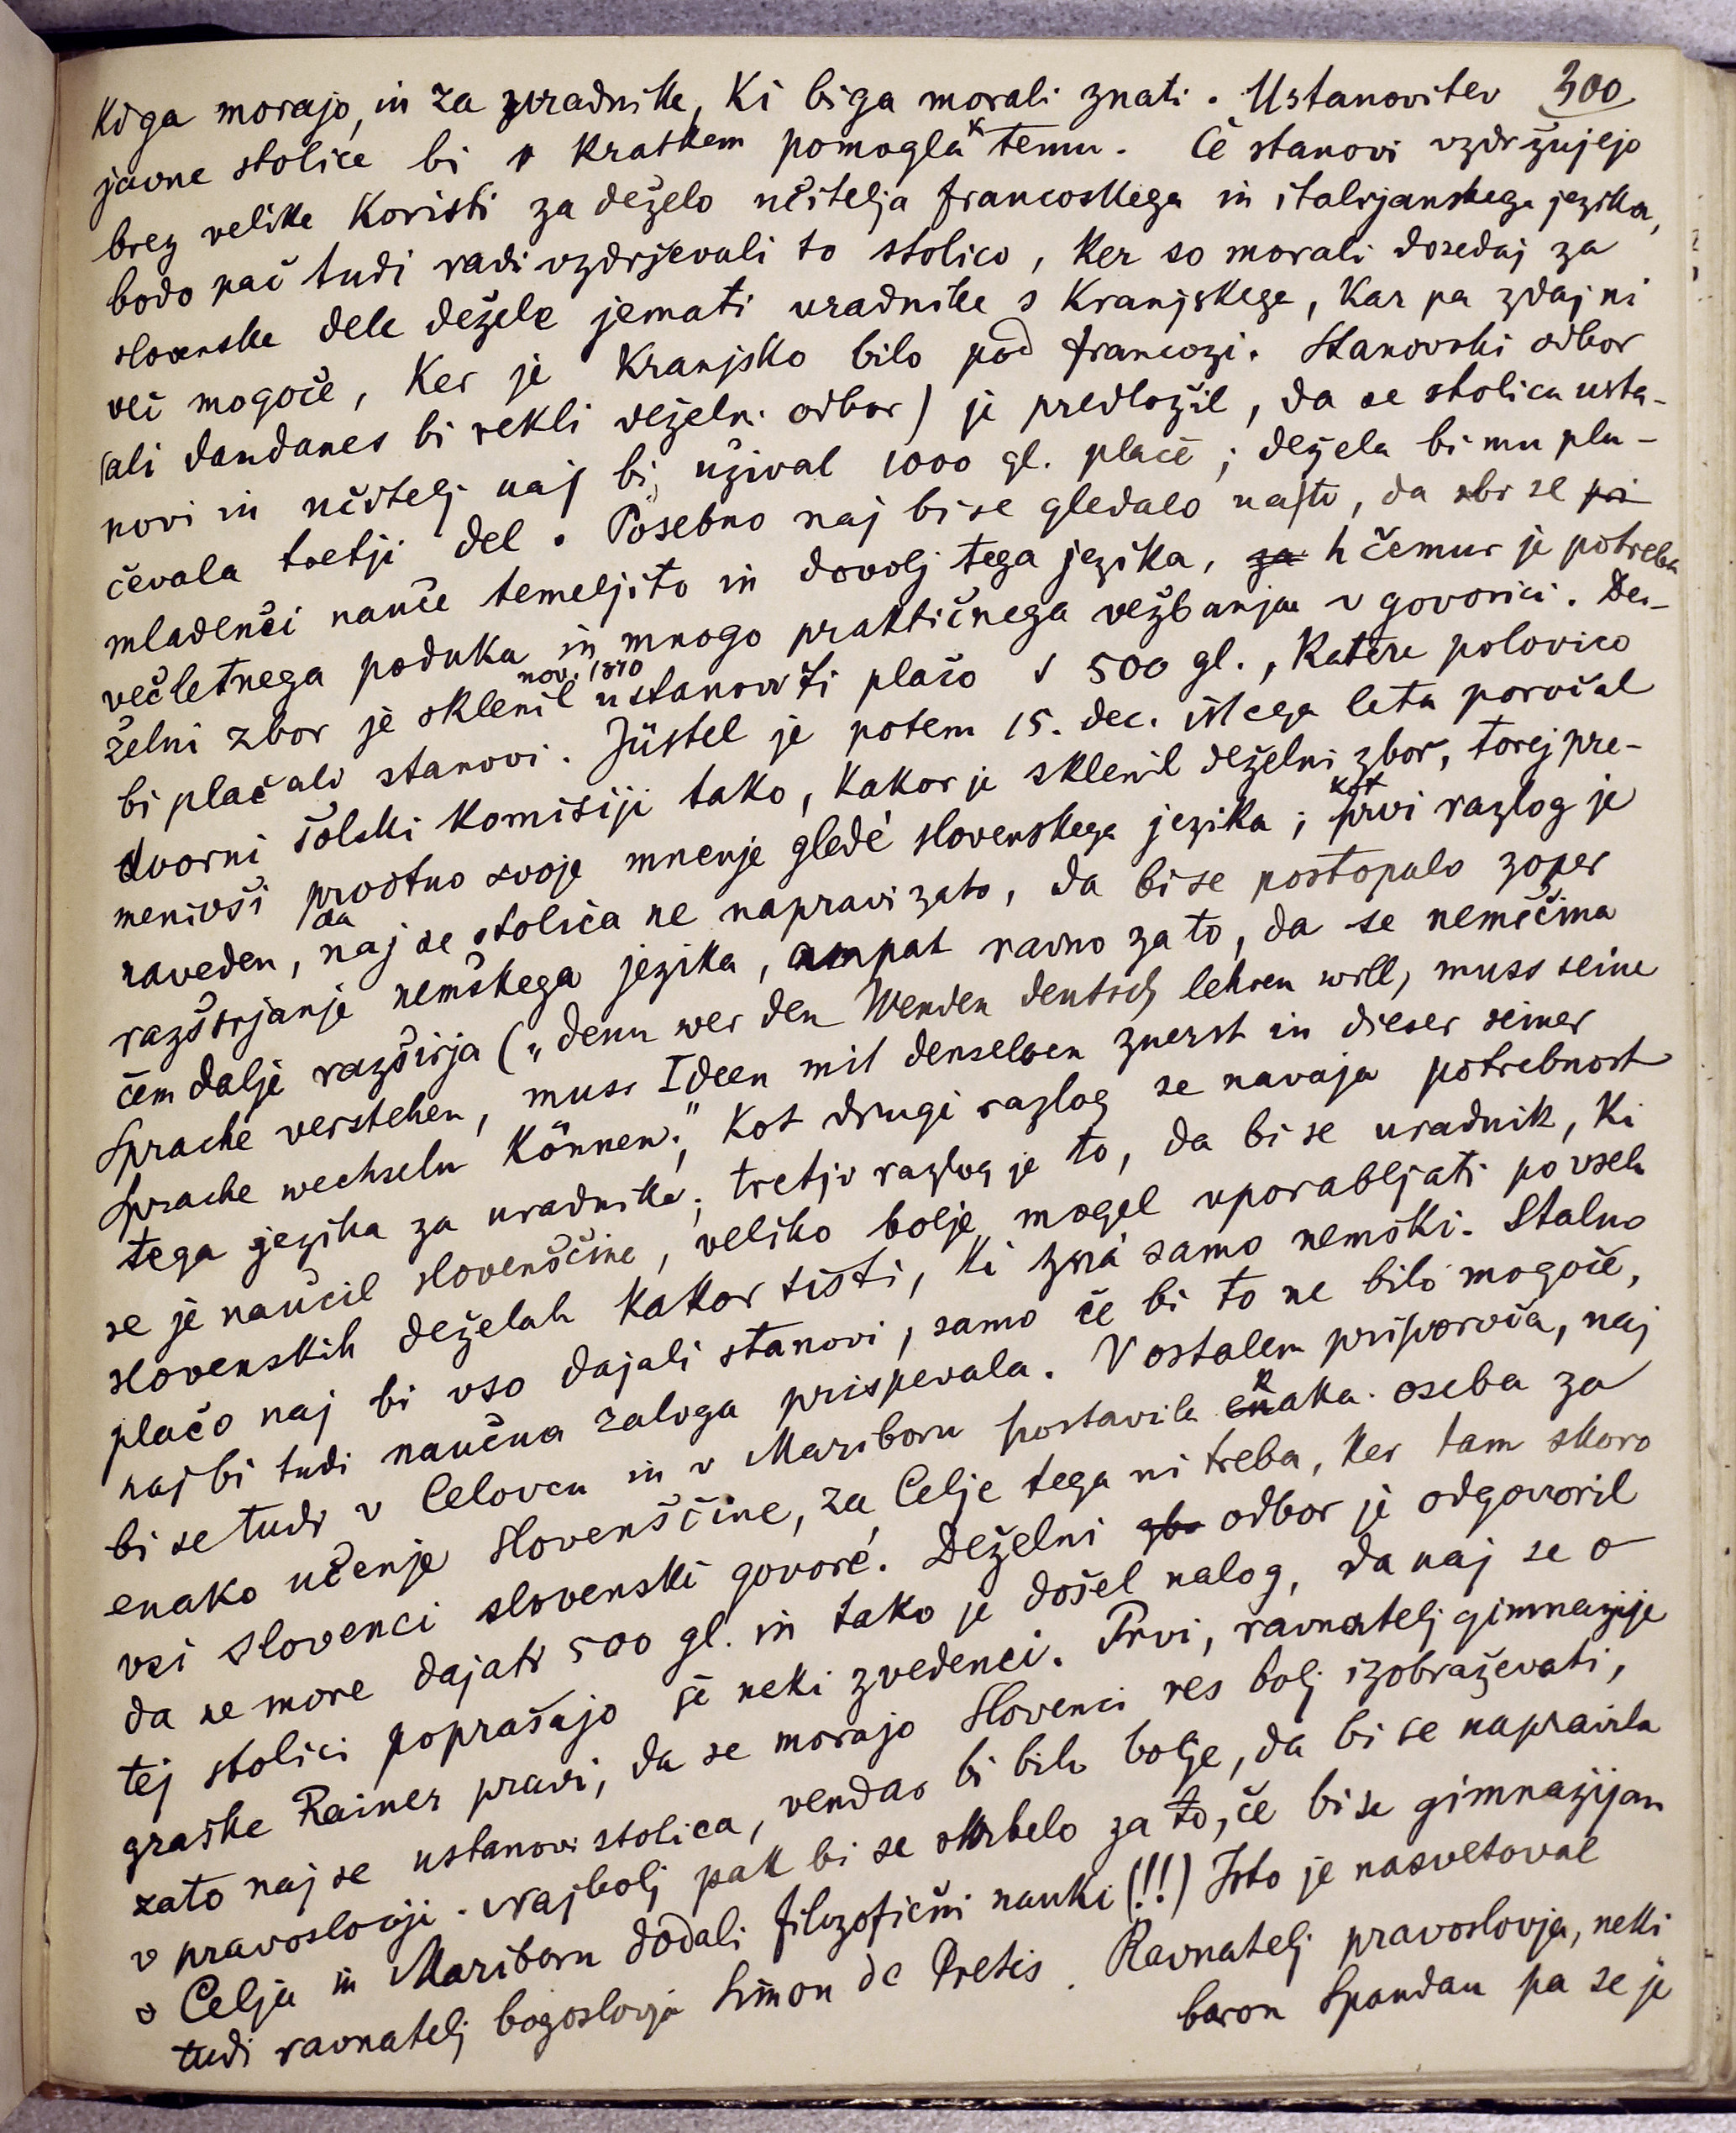 ki ga morajo, in za uradnike, ki bi ga morali znati. Ustanovitev 300
javne stolice bi v kratkem pomogla k temu. Če stanovi vzdržujejo
brez velike koristi za deželo učitelja francoskega in italijanskega jezika,
bodo pač tudi radi vzdrževali to stolico, ker so morali dosedaj za
slovenske dele dežele jemati uradnike s Kranjskege, kar pa zdaj ni
več mogoče, ker je Kranjsko bilo pod francozi. Stanovski odbor
(ali dandanes bi rekli deželni odbor) je predložil, da se stolica usta-
novi in učitelj naj bi užival 1000 gl. plače; dežela bi mu pla-
čevala tretji del. Posebno naj bi se gledalo na to, da se pri
mladenči nauče temeljito in dovolj tega jezika, za h čemur je potreba
večletnega poduka in mnogo praktičnega vežbanja v govorici. De-
želni zbor je sklenil nov. 1810 ustanoviti plačo s 500 gl., katere polovico
bi plačali stanovi. Jüstel je potem 15. dec. istega leta poročal
dvorni šolski komisiji tako, kakor je sklenil deželni zbor, torej pre-
menivši prvotno svoje mnenje gledé slovenskega jezika; kot prvi razlog je
naveden, da naj se stolica ne napravi zato, da bi se postopalo zoper
razširjanje nemškega jezika, ampak ravno za to, da se nemščina
čem dalje razširja („denn wer den Wenden deutsch lehren will, muss seine
Sprache verstehen, muss Ideen mit denselben zuerst in dieser seiner
Sprache wechseln können.“; Kot drugi razlog se navaja potrebnost
tega jezika za uradnike; tretji razlog je to, da bi se uradnik, ki
se je naučil slovenščine, veliko bolje mogel uporabljati po vseh
slovenskih deželah kakor tisti, ki zná samo nemški. Stalno
plačo naj bi vso dajali stanovi, samo če bi to ne bilo mogoče,
naj bi tudi naučna zaloga prispevala. V ostalem priporoča, naj
bi se tudi v Celovcu in v Mariboru postavila enaka oseba za
enako učenje slovenščine, za Celje tega ni treba, ker tam skoro
vsi Slovenci slovenski govoré. Deželni zbo odbor je odgovoril
da ne more dajati 500 gl. in tako je došel nalog, da naj se o
tej stolici poprašajo še neki zvedenci. Prvi, ravnatelj gimnazije
graške Rainer pravi, da se morajo Slovenci res bolj izobraževati,
zato naj se ustanovi stolica, vendar bi bilo bolje, da bi se napravila
v pravoslovji. Najbolj pak bi se skrbelo za to, če bi se gimnazijam
v Celju in Mariboru dodali filozofični nauki (!!) Isto je nasvetoval
tudi ravnatelj bogoslovja Simon de Pretis. Ravnatelj pravoslovja, neki
baron Spandau pa se je